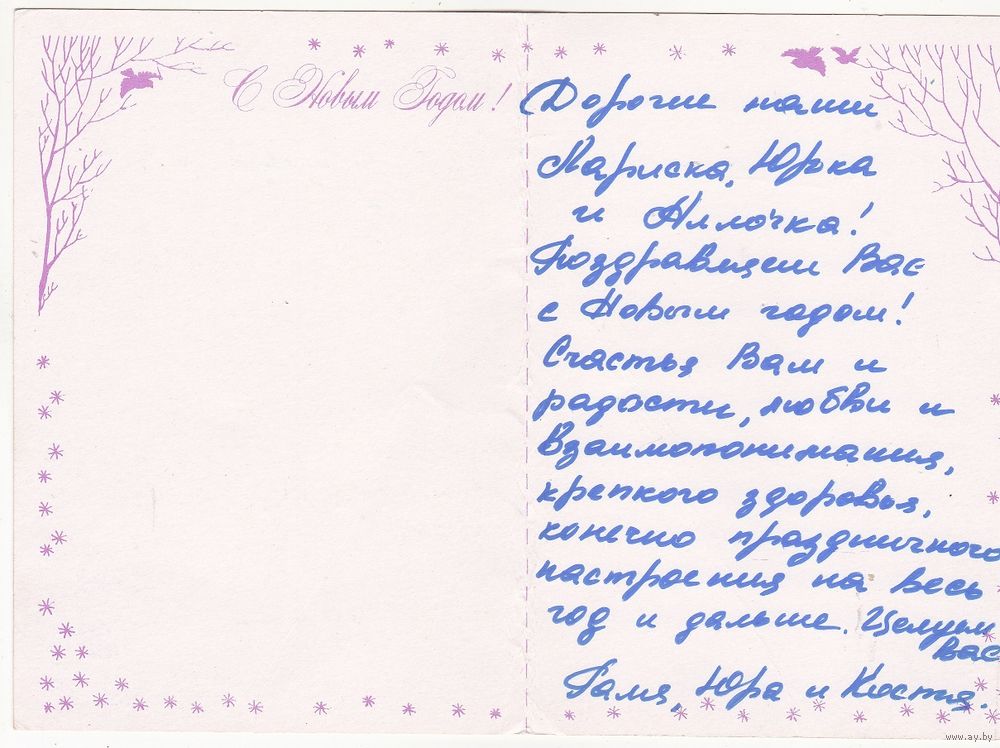 С Новым Годом!
Дорогие наши
Лариска, Юрка
и Нилочка!
Поздравляем Вас
с Новым годом!
Счастья Вам и
радости, любви и
взаимопонимания,
крепкого здоровья,
конечно праздничного
настроения на весь
год и дальше. Целуем
вас
Галя, Юра и Костя.
www.ay.by